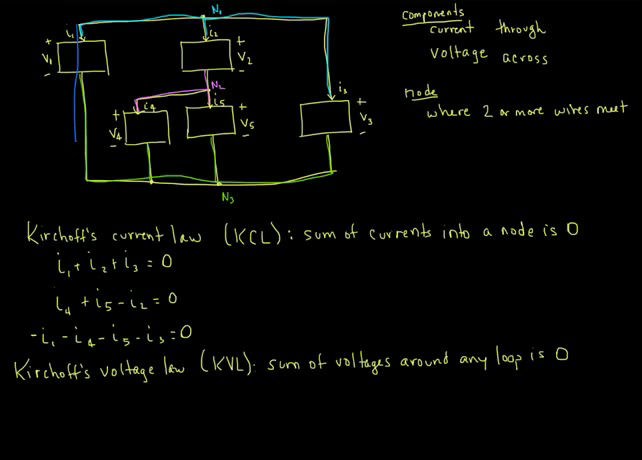 N₁
i₁
i₂
+
V₁
-
+
V₂
-
N₂
i₄
i₅
i₃
+
V₄
-
+
V₅
-
+
V₃
-
N₃
Components
current through
voltage across
node
where 2 or more wires meet
Kirchoff's current law (KCL): sum of currents into a node is 0
i₁ + i₂ + i₃ = 0
i₄ + i₅ - i₂ = 0
-i₁ - i₄ - i₅ - i₃ = 0
Kirchoff's voltage law (KVL): sum of voltages around any loop is 0